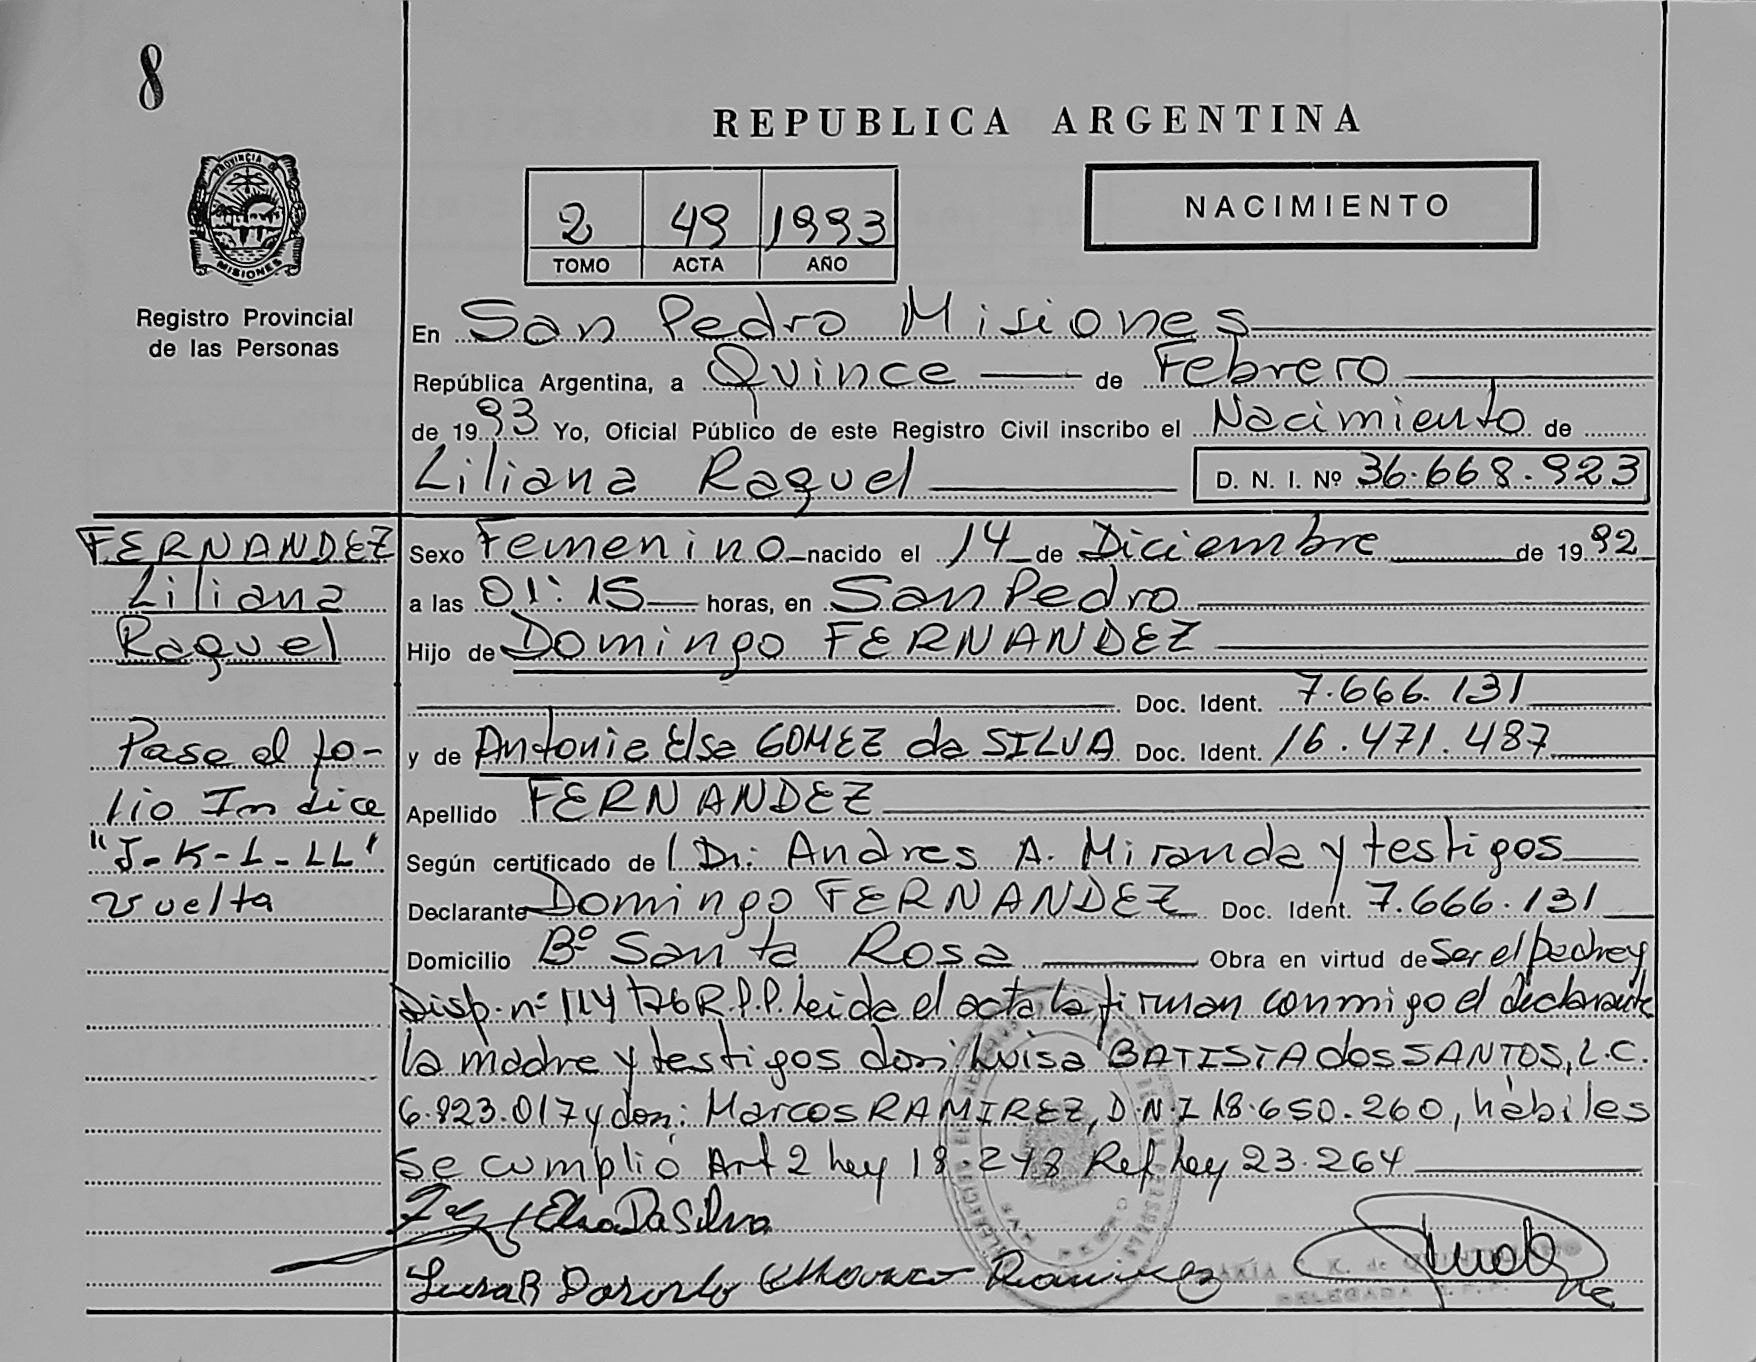 8
REPUBLICA ARGENTINA
PROVINCIA DE
MISIONES
2 49 1993
TOMO ACTA AÑO
NACIMIENTO
Registro Provincial
de las Personas
En San Pedro Misiones
República Argentina, a Quince de Febrero
de 1993 Yo, Oficial Público de este Registro Civil inscribo el Nacimiento de
Liliana Raquel D. N. I. Nº 36.668.923
FERNANDEZ
Liliana
Raquel
Pase al fo-
lio Indice
"J-K-L-LL"
vuelta
Sexo Femenino nacido el 14 de Diciembre de 1992
a las 01:15 horas, en San Pedro
Hijo de Domingo FERNANDEZ
Doc. Ident. 7.666.131
y de Antonia Elsa GOMEZ da SILVA Doc. Ident. 16.471.487
Apellido FERNANDEZ
Según certificado de l Dr: Andres A. Miranda y testigos
Declarante Domingo FERNANDEZ Doc. Ident. 7.666.131
Domicilio Bº Santa Rosa Obra en virtud de Ser el padre y
Disp. nº 114/76 R.P.P. Leida el acta la firman conmigo el declarante
la madre y testigos doña: Luisa BATISTA dos SANTOS, L.C.
6.923.017 y don: Marcos RAMIREZ, D.N.I 18.650.260, hábiles
Se cumplió Art 2 Ley 18.248 Ref Ley 23.264
Elsa Da Silva
Luisa B Ramirez
DELEGADA